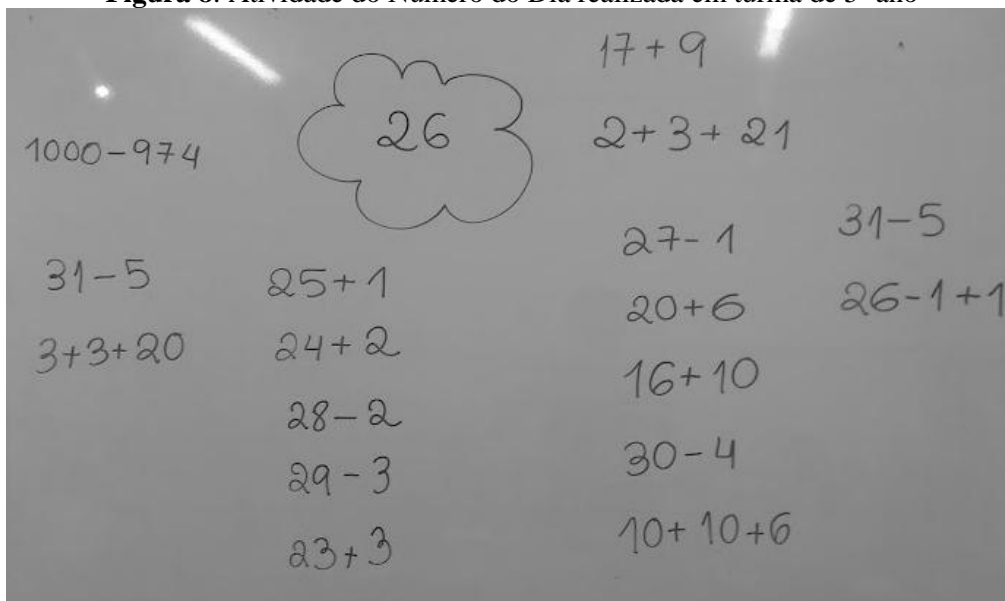 Figura 6: Atividade do Número do Dia realizada em turma de 3º ano
1000-974
26
17+9
2+3+21
31-5
3+3+20
25+1
24+2
28-2
29-3
23+3
27-1
20+6
16+10
30-4
10+10+6
31-5
26-1+1